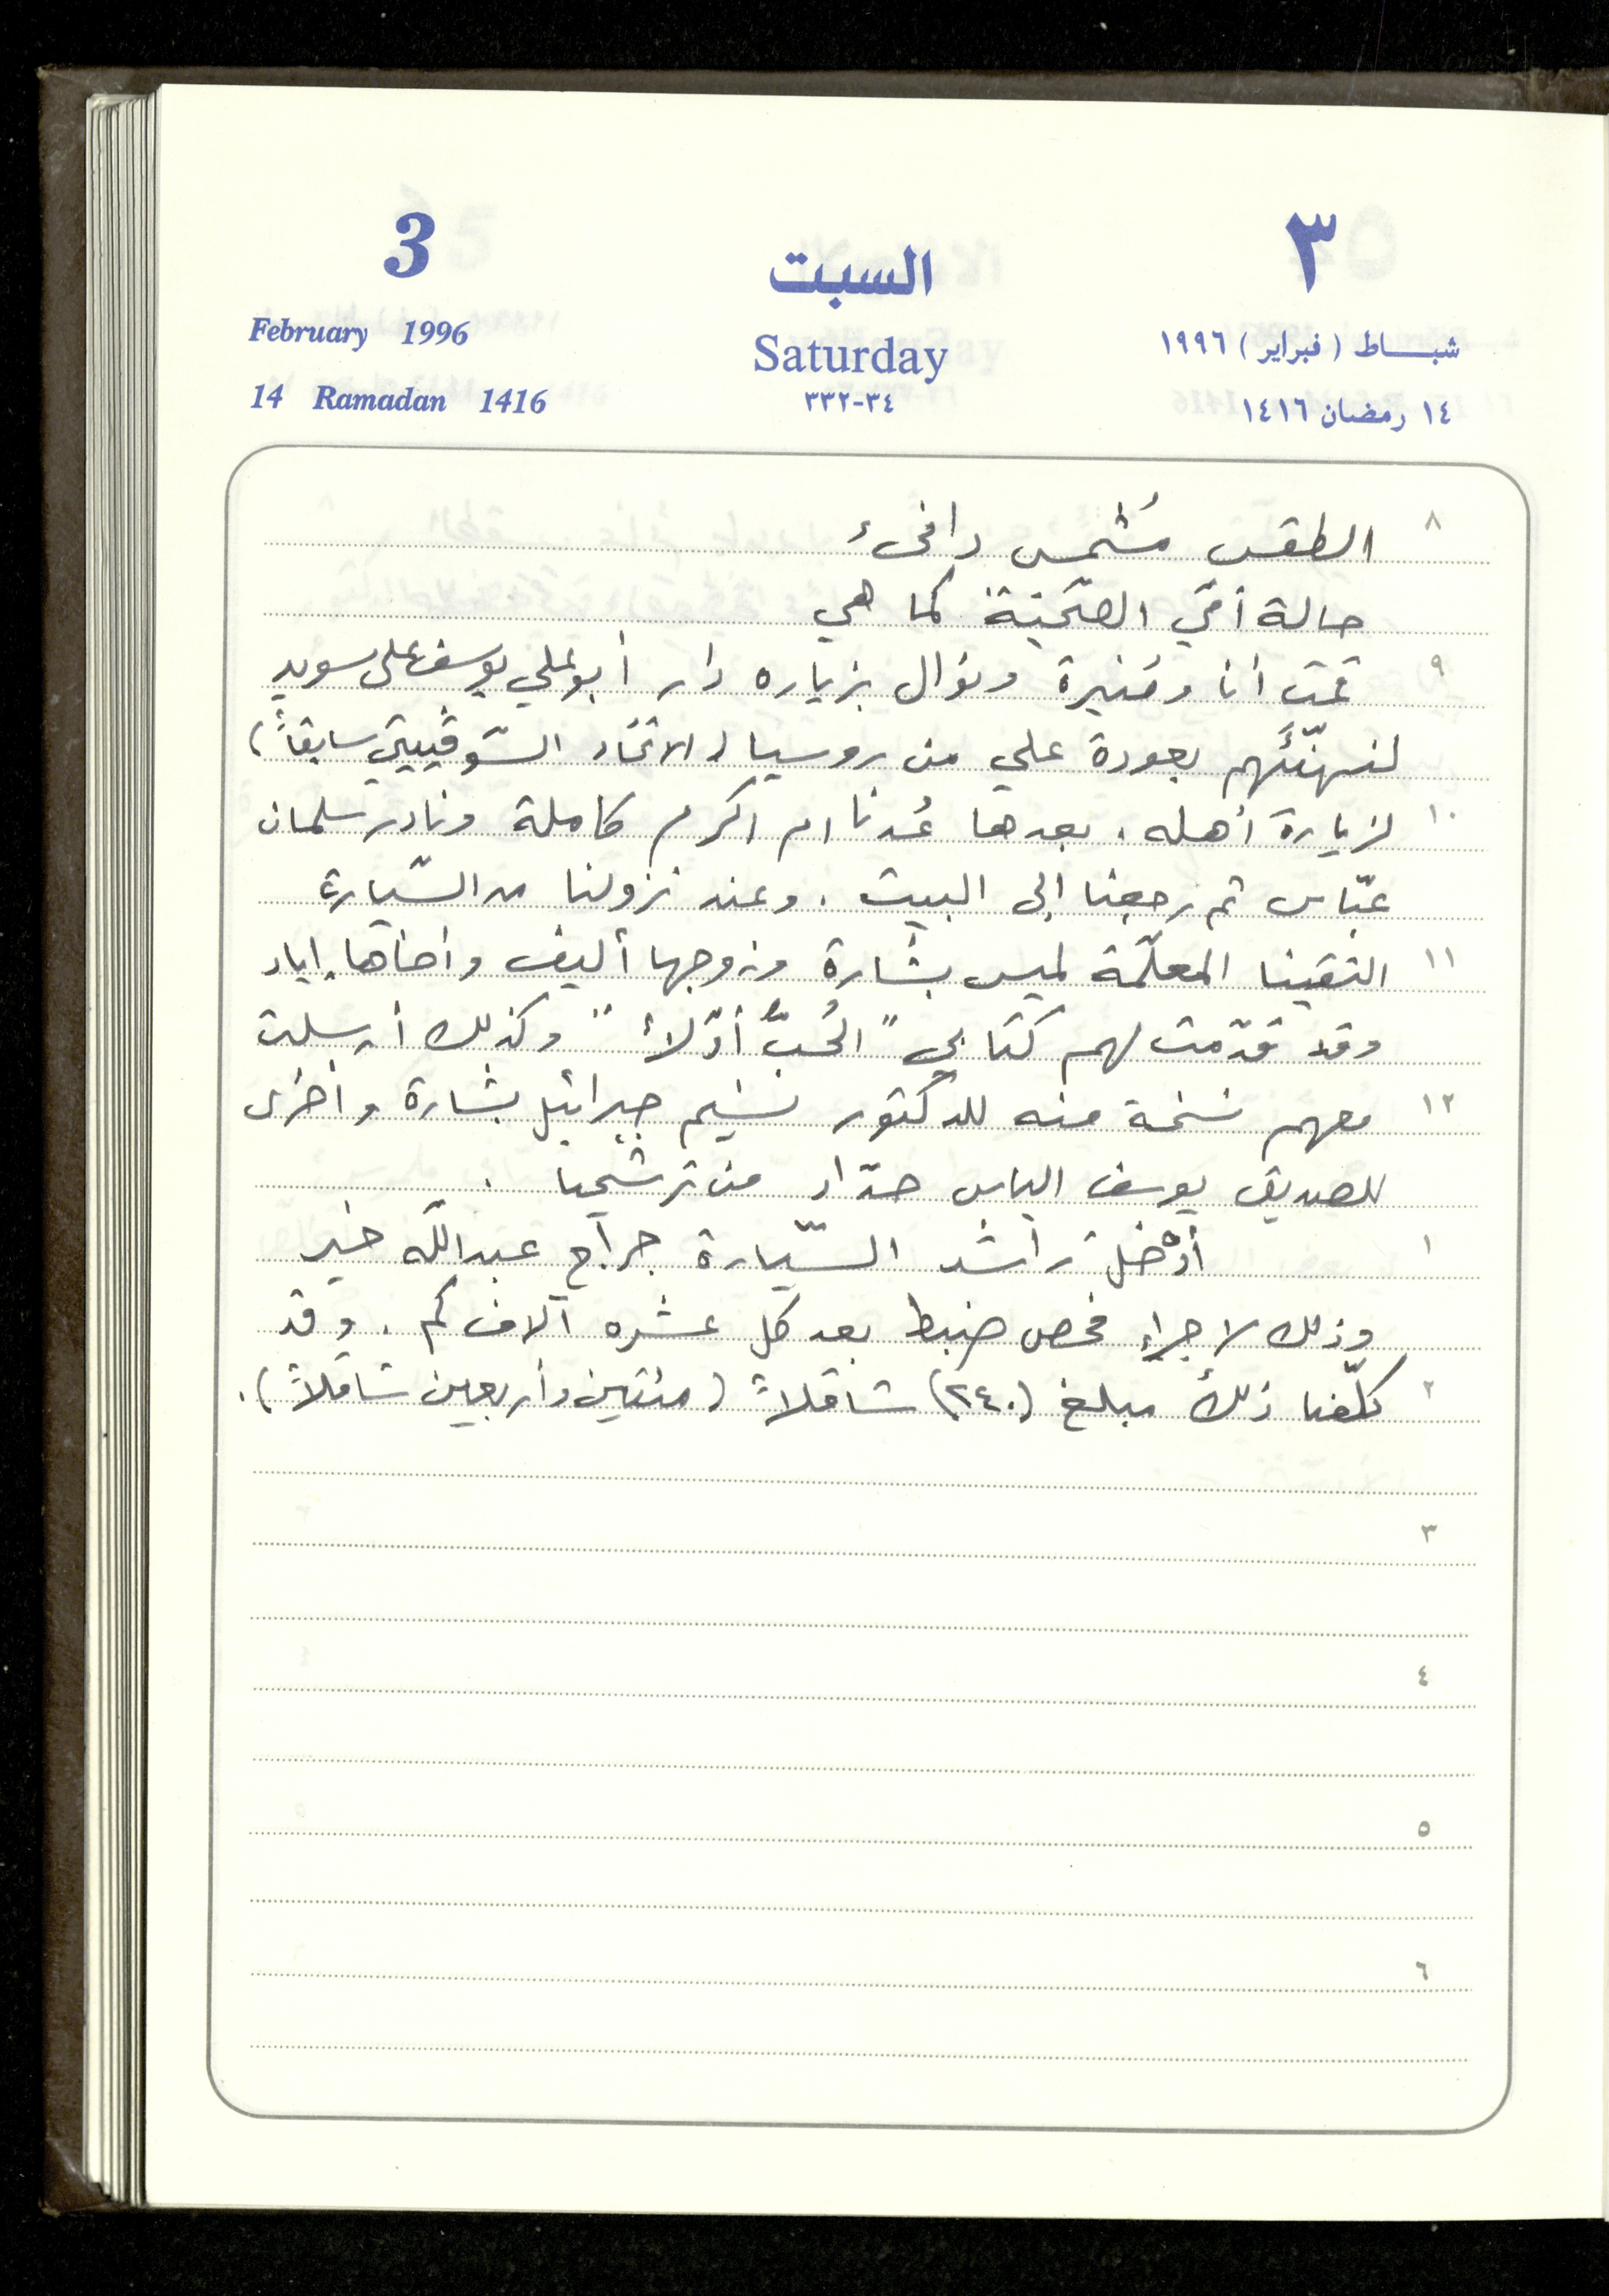 3
السبت
٣
February 1996
Saturday
شباط (فبراير) ١٩٩٦
14 Ramadan 1416
٣٤-٣٣٢
١٤ رمضان ١٤١٦
٨ الطقس مُشمس دافىء
حالة أمّي الصّحّيّة كما هي
٩ قمت أنا ومُنيرة ونوال بزياره دار أبو علي يوسف علي سويد
لنهنّئَهم بعودة علي من روسيا (الاتّحاد السّوڤييتي سابقاً)
١٠ لزيارة أهله. بعدها عُدنا ام اكرم كاملة ونادر سلمان
عبّاس ثم رجعنا إلى البيت. وعند نزولنا من السّيارة
١١ التقينا المعلّمة لميس بشارة وزوجها أليف وأخاها إياد
وقد قدّمت لهم كتابي "الحُبُّ أوّلاً" وكذلك أرسلت
١٢ معهم نسخة منه للدكتور نسيم جبرائيل بشارة وأخرى
للصديق يوسف الياس حدّاد من ترشيحا.
١ أدْخل راشد السّيّارة جراج عبدالله خير
وذلك لاجراء فحص ضبط بعد كل عشره آلاف كم. وقد
٢ كلّفنا ذلك مبلغ (٢٤٠) شاقلاً (مئتين وأربعين شاقلاً).
٣
٤
٥
٦